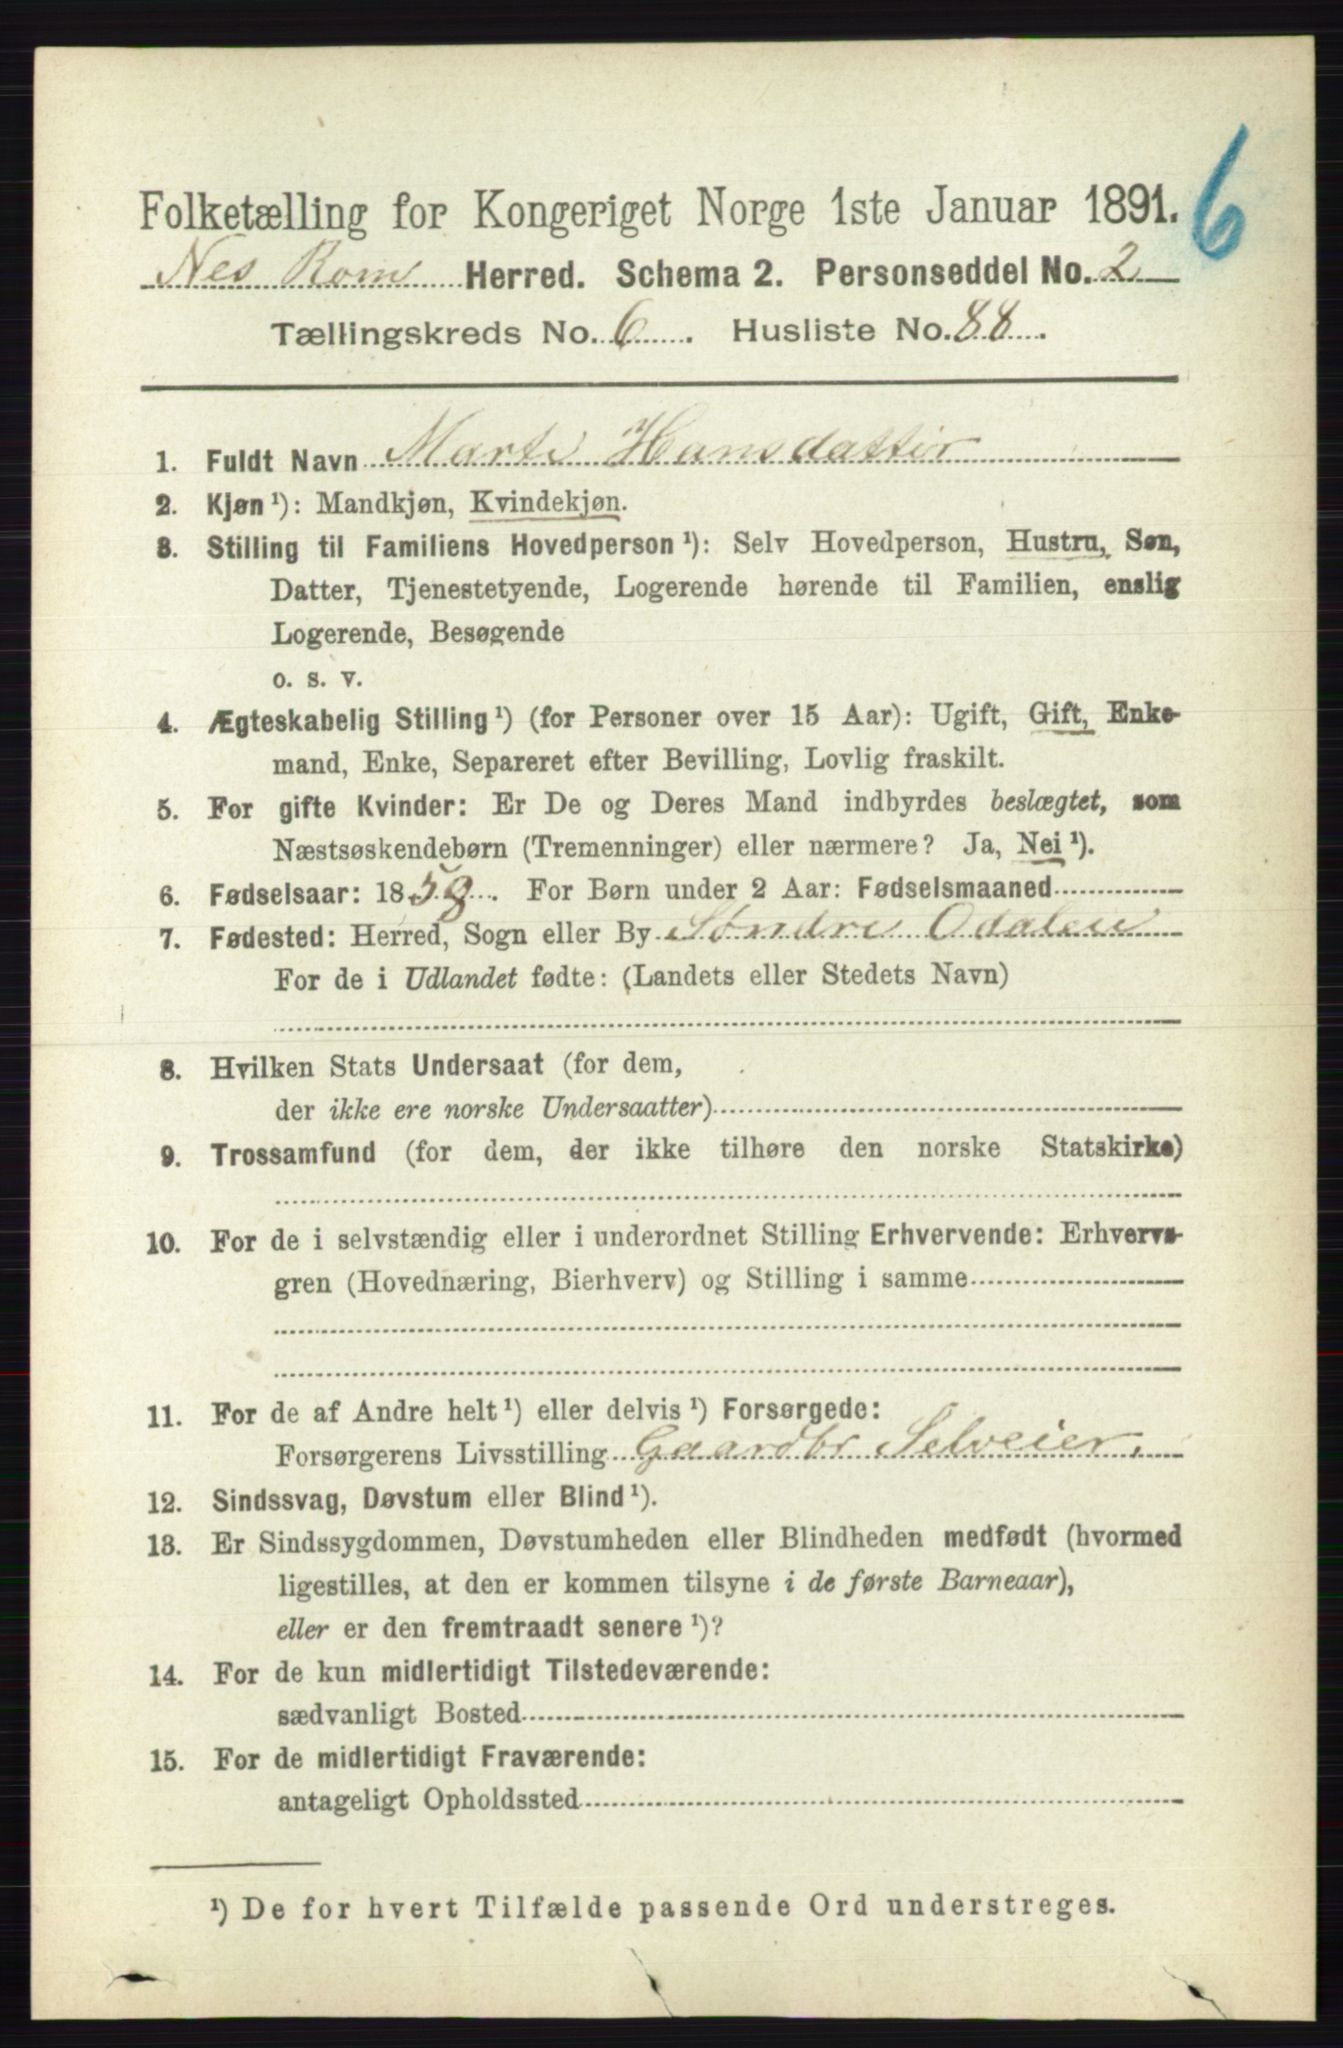 6
Folketælling for Kongeriget Norge 1ste Januar 1891.
Nes Rom Herred. Schema 2. Personseddel No. 2
Tællingskreds No. 6. Husliste No. 88.
1. Fuldt Navn Marte Hansdatter
2. Kjøn ¹): Mandkjøn, Kvindekjøn.
3. Stilling til Familiens Hovedperson ¹): Selv Hovedperson, Hustru, Søn,
Datter, Tjenestetyende, Logerende hørende til Familien, enslig
Logerende, Besøgende
o. s. v.
4. Ægteskabelig Stilling ¹) (for Personer over 15 Aar): Ugift, Gift, Enke-
mand, Enke, Separeret efter Bevilling, Lovlig fraskilt.
5. For gifte Kvinder: Er De og Deres Mand indbyrdes beslægtet, som
Næstsøskendebørn (Tremenninger) eller nærmere? Ja, Nei ¹).
6. Fødselsaar: 1858. For Børn under 2 Aar: Fødselsmaaned
7. Fødested: Herred, Sogn eller By Søndre Odalen
For de i Udlandet fødte: (Landets eller Stedets Navn)
8. Hvilken Stats Undersaat (for dem,
der ikke ere norske Undersaatter)
9. Trossamfund (for dem, der ikke tilhøre den norske Statskirke)
10. For de i selvstændig eller i underordnet Stilling Erhvervende: Erhvervs-
gren (Hovednæring, Bierhverv) og Stilling i samme
11. For de af Andre helt ¹) eller delvis ¹) Forsørgede:
Forsørgerens Livsstilling Gaardbr Selveier.
12. Sindssvag, Døvstum eller Blind ¹).
13. Er Sindssygdommen, Døvstumheden eller Blindheden medfødt (hvormed
ligestilles, at den er kommen tilsyne i de første Barneaar),
eller er den fremtraadt senere ¹)?
14. For de kun midlertidigt Tilstedeværende:
sædvanligt Bosted
15. For de midlertidigt Fraværende:
antageligt Opholdssted
¹) De for hvert Tilfælde passende Ord understreges.